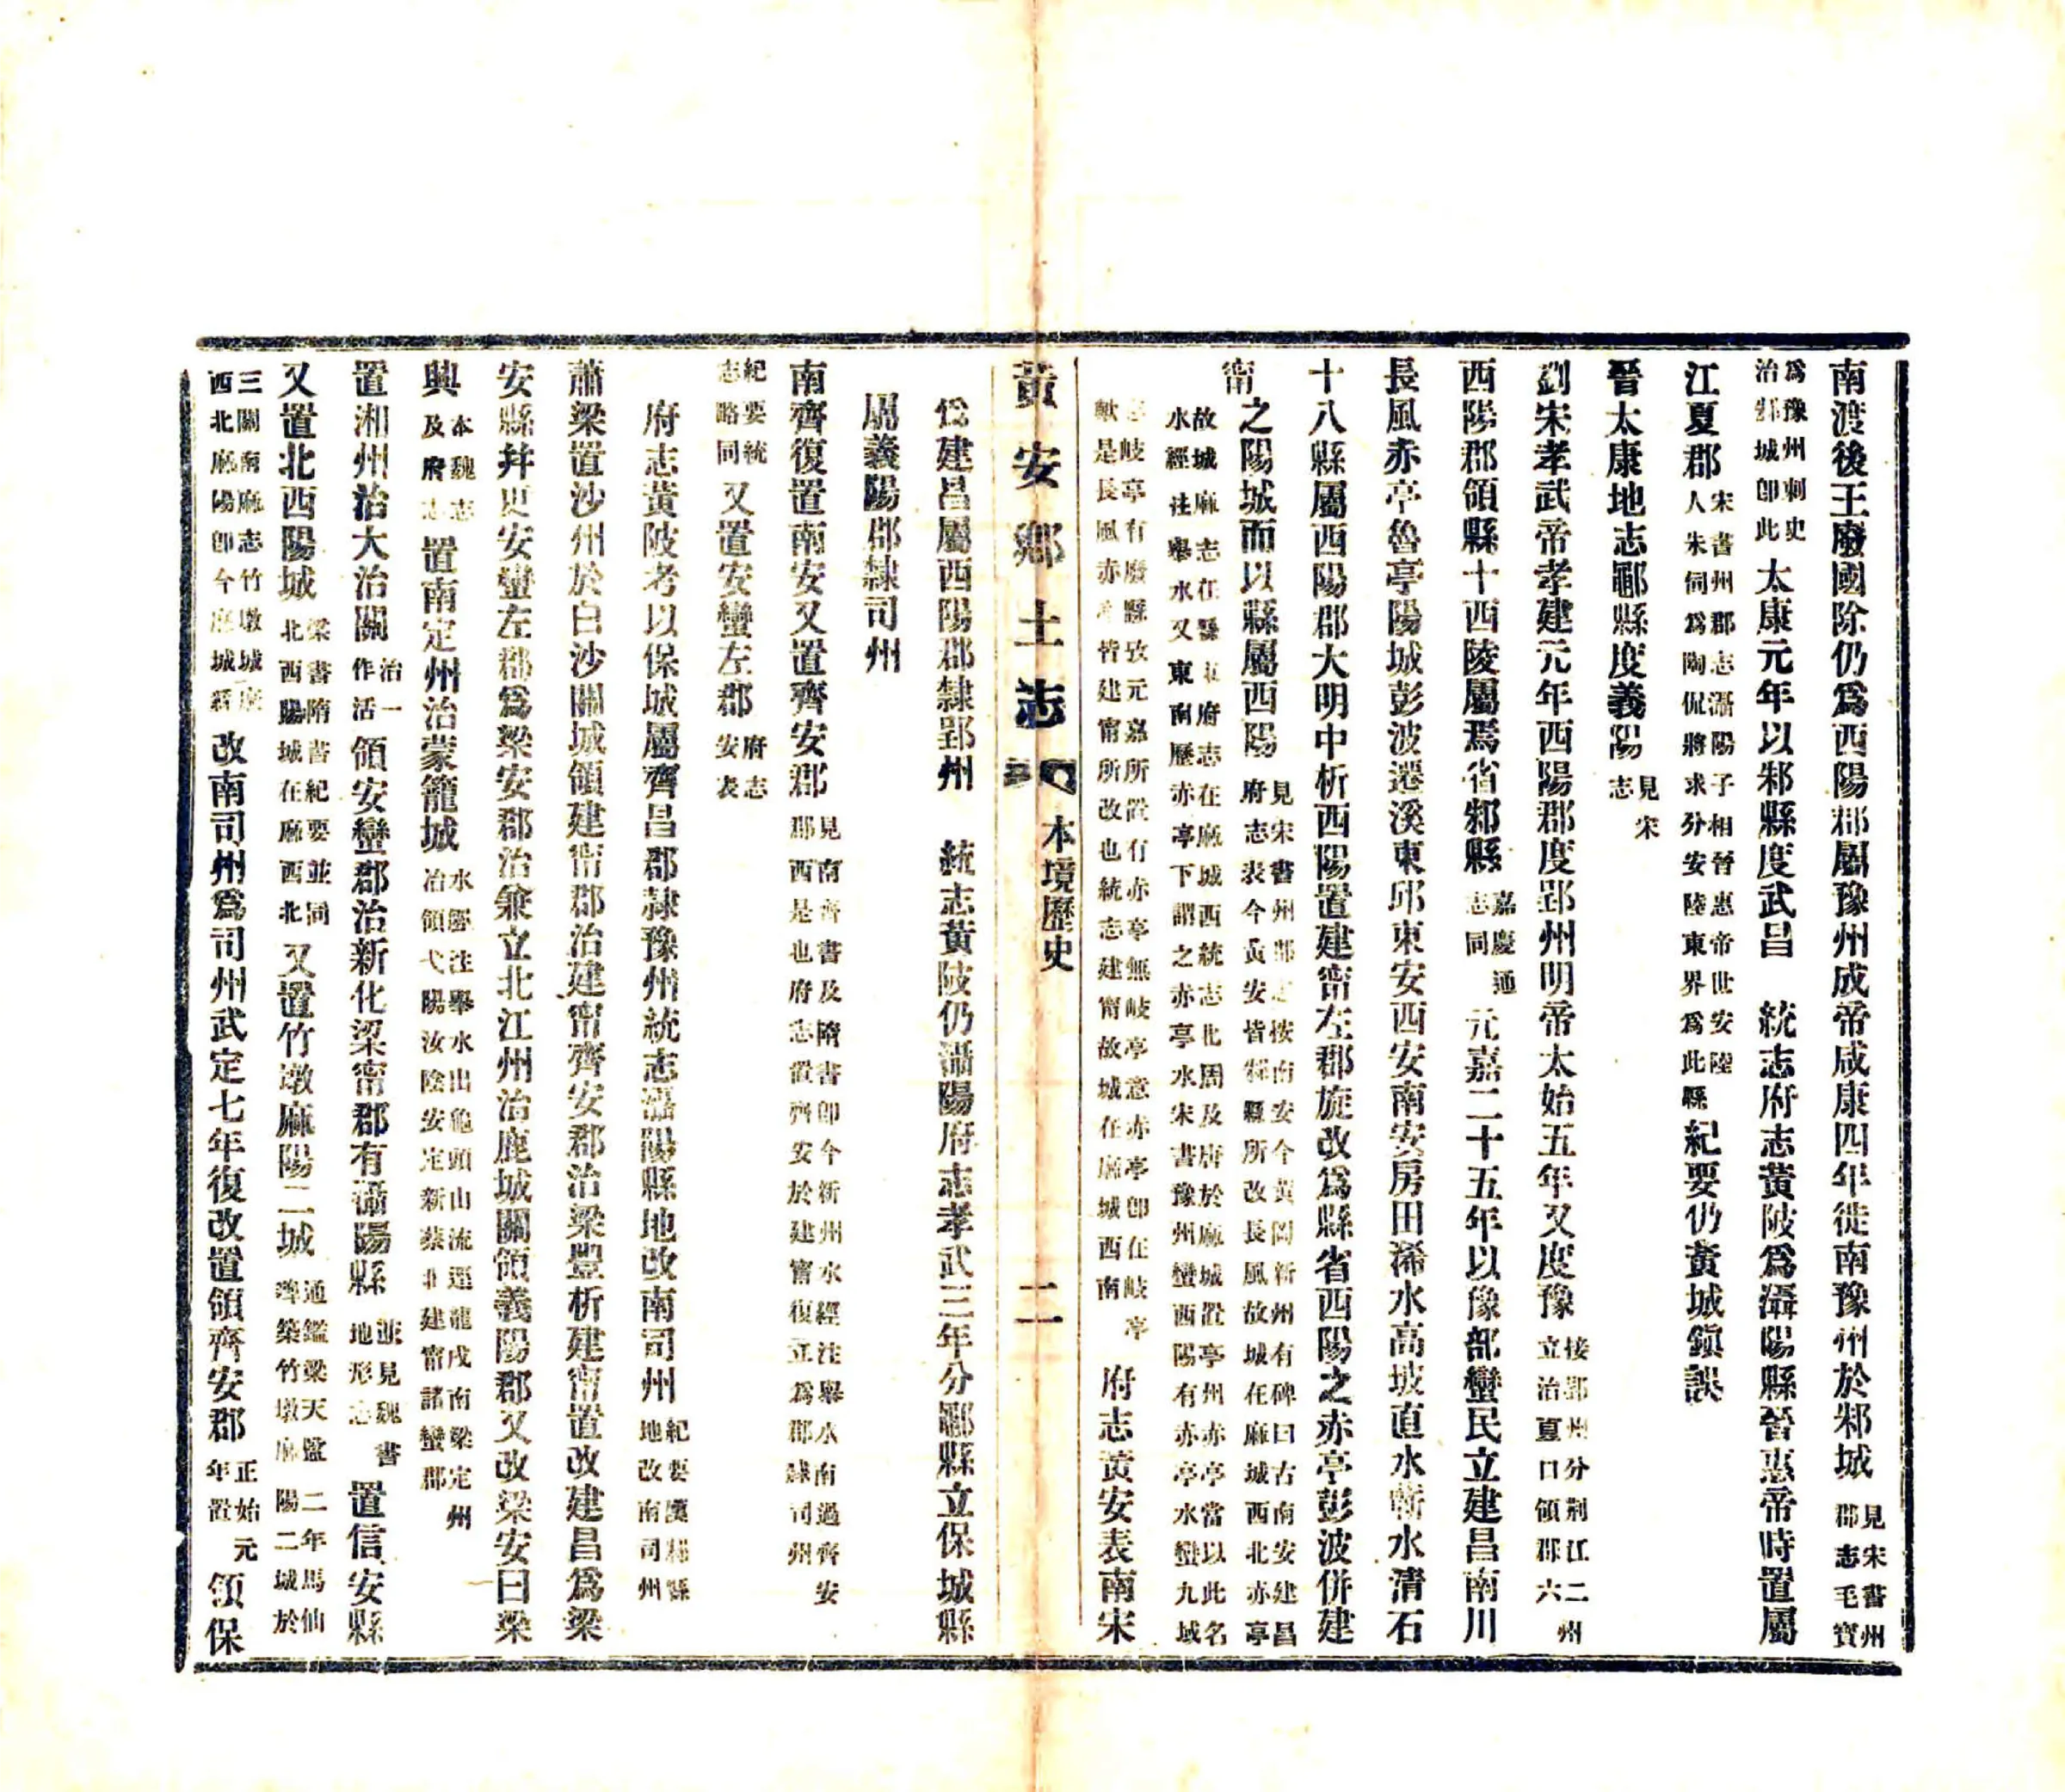 南渡後王廢國除仍爲西陽郡屬豫州成帝咸康四年徙南豫州於邾城見宋書州郡志毛寶
爲豫州刺史治邾城卽此太康元年以邾縣度武昌 統志府志黃陂爲灄陽縣晉惠帝時置屬
江夏郡宋書州郡志灄陽子相晉惠帝世安陸人朱伺爲陶侃將求分安陸東界爲此縣紀要仍黃城鎭誤
晉太康地志鄳縣度義陽見宋志
劉宋孝武帝孝建元年西陽郡度郢州明帝太始五年又度豫按郢州分荆江二州立治夏口領郡六
西陽郡領縣十西陵屬焉省邾縣嘉慶通志同元嘉二十五年以豫部蠻民立建昌南川
長風赤亭魯亭陽城彭波遷溪東邱東安西安南安房田浠水高坡直水蘄水清石
十八縣屬西陽郡大明中析西陽置建甯左郡旋改爲縣省西陽之赤亭彭波併建
甯之陽城而以縣屬西陽見宋書州郡志按南安今黃岡新州有碑曰古南安建昌府志表今黃安皆縣所改長風故城在麻城西北赤亭
故城麻志在縣東府志在麻城西統志北周及唐於麻城置亭州赤亭當以此名水經注舉水又東南歷赤亭下謂之赤亭水宋書豫州蠻西陽有赤亭水蠻九域
岐亭有廢縣攷元嘉所置有赤亭無岐亭意赤亭卽在岐亭歟是長風赤亭皆建甯所改也統志建甯故城在麻城西南府志黃安表南宋
黃安鄉土志 本境歷史 二
爲建昌屬西陽郡隸郢州 統志黃陂仍灄陽府志孝武三年分鄳縣立保城縣
屬義陽郡隸司州
南齊復置南安又置齊安郡見南齊書及隋書卽今新州水經注舉水南過齊安郡西是也府志置齊安於建甯復立爲郡隸司州
紀要統志略同又置安蠻左郡府志安表
府志黃陂考以保城屬齊昌郡隸豫州統志灄陽縣地改南司州紀要漢縣縣地改南司州
蕭梁置沙州於白沙關城領建甯郡治建甯齊安郡治梁豐析建甯置改建昌爲梁
安縣幷更安蠻左郡爲梁安郡治兼立北江州治鹿城關領義陽郡又改梁安曰梁
興本魏志及府志置南定州治蒙籠城水經注舉水出龜頭山流逕龍戍南梁定州治領弋陽汝陰安定新蔡北建甯諸蠻郡
置湘州治大治關治一作活領安蠻郡治新化梁甯郡有灄陽縣並見魏書地形志置信安縣
又置北西陽城梁書隋書紀要並同北西陽城在麻西北又置竹墩麻陽二城通鑑梁天監二年馬仙琕築竹墩麻陽二城於
三關南麻志竹墩城在西北麻陽卽今麻城縣改南司州爲司州武定七年復改置領齊安郡正始元年置領保